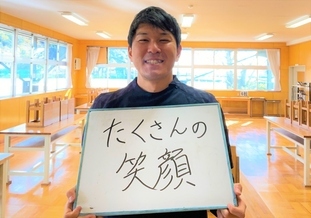 たくさんの
笑顔